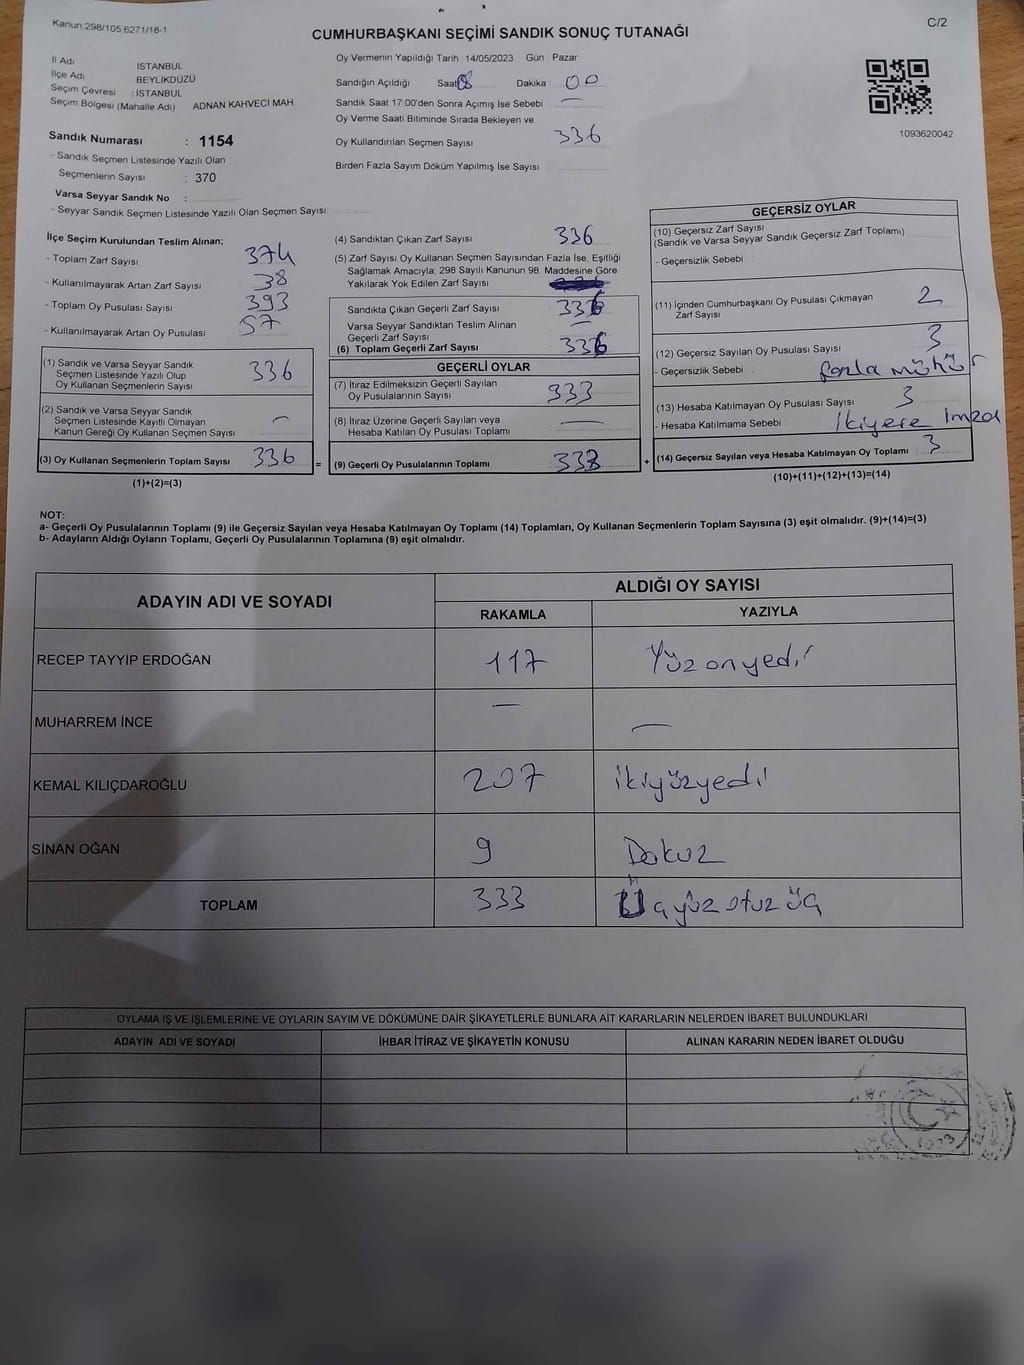 Kanun:298/105;6271/18-1
C/2
CUMHURBAŞKANI SEÇİMİ SANDIK SONUÇ TUTANAĞI
İl Adı İSTANBUL
İlçe Adı BEYLİKDÜZÜ
Seçim Çevresi : İSTANBUL
Seçim Bölgesi (Mahalle Adı) ADNAN KAHVECİ MAH.
Sandık Numarası : 1154
- Sandık Seçmen Listesinde Yazılı Olan
Seçmenlerin Sayısı : 370
Varsa Seyyar Sandık No :
- Seyyar Sandık Seçmen Listesinde Yazılı Olan Seçmen Sayısı
Oy Vermenin Yapıldığı Tarih 14/05/2023 Gün Pazar
Sandığın Açıldığı Saat 8 Dakika 00
Sandık Saat 17:00'den Sonra Açımış İse Sebebi —
Oy Verme Saati Bitiminde Sırada Bekleyen ve
Oy Kullandırılan Seçmen Sayısı 336
Birden Fazla Sayım Döküm Yapılmış İse Sayısı
1093620042
İlçe Seçim Kurulundan Teslim Alınan;
- Toplam Zarf Sayısı 374
- Kullanılmayarak Artan Zarf Sayısı 38
- Toplam Oy Pusulası Sayısı 393
- Kullanılmayarak Artan Oy Pusulası 57
(1) Sandık ve Varsa Seyyar Sandık
Seçmen Listesinde Yazılı Olup
Oy Kullanan Seçmenlerin Sayısı 336
(2) Sandık ve Varsa Seyyar Sandık
Seçmen Listesinde Kayıtlı Olmayan
Kanun Gereği Oy Kullanan Seçmen Sayısı —
(3) Oy Kullanan Seçmenlerin Toplam Sayısı 336 =
(1)+(2)=(3)
(4) Sandıktan Çıkan Zarf Sayısı 336
(5) Zarf Sayısı Oy Kullanan Seçmen Sayısından Fazla İse, Eşitliği
Sağlamak Amacıyla; 298 Sayılı Kanunun 98. Maddesine Göre
Yakılarak Yok Edilen Zarf Sayısı
Sandıkta Çıkan Geçerli Zarf Sayısı 336
Varsa Seyyar Sandıktan Teslim Alınan
Geçerli Zarf Sayısı —
(6) Toplam Geçerli Zarf Sayısı 336
GEÇERLİ OYLAR
(7) İtiraz Edilmeksizin Geçerli Sayılan
Oy Pusulalarının Sayısı 333
(8) İtiraz Üzerine Geçerli Sayılan veya
Hesaba Katılan Oy Pusulası Toplamı —
(9) Geçerli Oy Pusulalarının Toplamı 333 +
GEÇERSİZ OYLAR
(10) Geçersiz Zarf Sayısı
(Sandık ve Varsa Seyyar Sandık Geçersiz Zarf Toplamı)
- Geçersizlik Sebebi
(11) İçinden Cumhurbaşkanı Oy Pusulası Çıkmayan
Zarf Sayısı 2
(12) Geçersiz Sayılan Oy Pusulası Sayısı 3
- Geçersizlik Sebebi fazla mühür
(13) Hesaba Katılmayan Oy Pusulası Sayısı 3
- Hesaba Katılmama Sebebi İkiyere imza
(14) Geçersiz Sayılan veya Hesaba Katılmayan Oy Toplamı 3
(10)+(11)+(12)+(13)=(14)
NOT:
a- Geçerli Oy Pusulalarının Toplamı (9) ile Geçersiz Sayılan veya Hesaba Katılmayan Oy Toplamı (14) Toplamları, Oy Kullanan Seçmenlerin Toplam Sayısına (3) eşit olmalıdır. (9)+(14)=(3)
b- Adayların Aldığı Oyların Toplamı, Geçerli Oy Pusulalarının Toplamına (9) eşit olmalıdır.
ADAYIN ADI VE SOYADI ALDIĞI OY SAYISI
RAKAMLA YAZIYLA
RECEP TAYYİP ERDOĞAN 117 Yüzonyedi
MUHARREM İNCE — —
KEMAL KILIÇDAROĞLU 207 ikiyüzyedi
SİNAN OĞAN 9 Dokuz
TOPLAM 333 Üçyüzotuzüç
OYLAMA İŞ VE İŞLEMLERİNE VE OYLARIN SAYIM VE DÖKÜMÜNE DAİR ŞİKAYETLERLE BUNLARA AİT KARARLARIN NELERDEN İBARET BULUNDUKLARI
ADAYIN ADI VE SOYADI İHBAR İTİRAZ VE ŞİKAYETİN KONUSU ALINAN KARARIN NEDEN İBARET OLDUĞU